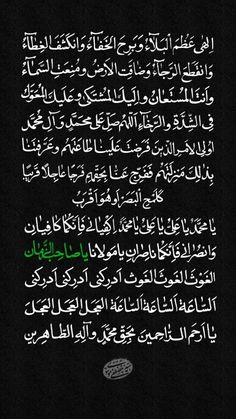 اِلهی عَظُمَ الْبَلاَّءُ وَبَرِحَ الْخَفآءُ وَانْکَشَفَ الْغِطآءُ
وَانْقَطَعَ الرَّجآءُ وَضاقَتِ الاْرْضُ وَمُنِعَتِ السَّمآءُ
واَنْتَ الْمُسْتَعانُ وَاِلَیْکَ الْمُشْتَکی وَعَلَیْکَ الْمُعَوَّلُ
فِی الشِّدَّةِ وَالرَّخآءِ اَللّهُمَّ صَلِّ عَلی مُحَمَّدٍ وَآلِ مُحَمَّدٍ
اُولِی الاْمْرِ الَّذینَ فَرَضْتَ عَلَیْنا طاعَتَهُمْ وَعَرَّفْتَنا
بِذلِکَ مَنْزِلَتَهُمْ فَفَرِّجْ عَنّا بِحَقِّهِمْ فَرَجاً عاجِلاً قَریباً
کَلَمْحِ الْبَصَرِ اَوْ هُوَ اَقْرَبُ
یا مُحَمَّدُ یا عَلِیُّ یا عَلِیُّ یا مُحَمَّدُ اِکْفِیانی فَاِنَّکُما کافِیانِ
وَانْصُرانی فَاِنَّکُما ناصِرانِ یا مَوْلانا یا صاحِبَ الزَّمانِ
الْغَوْثَ الْغَوْثَ الْغَوْثَ اَدْرِکْنی اَدْرِکْنی اَدْرِکْنی
اَلسّاعَةَ اَلسّاعَةَ اَلسّاعَةَ الْعَجَلَ الْعَجَلَ الْعَجَلَ
یا اَرْحَمَ الرّاحِمینَ بِحَقِّ مُحَمَّدٍ وَآلِهِ الطّاهِرینَ